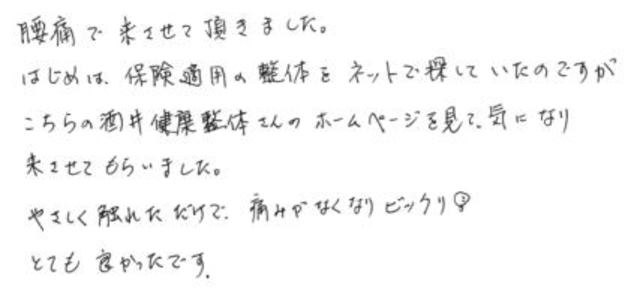 腰痛で来させて頂きました。
はじめは、保険適用の整体をネットで探していたのですが
こちらの酒井健康整体さんのホームページを見て、気になり
来させてもらいました。
やさしく触れただけで、痛みがなくなりビックリ
とても良かったです。